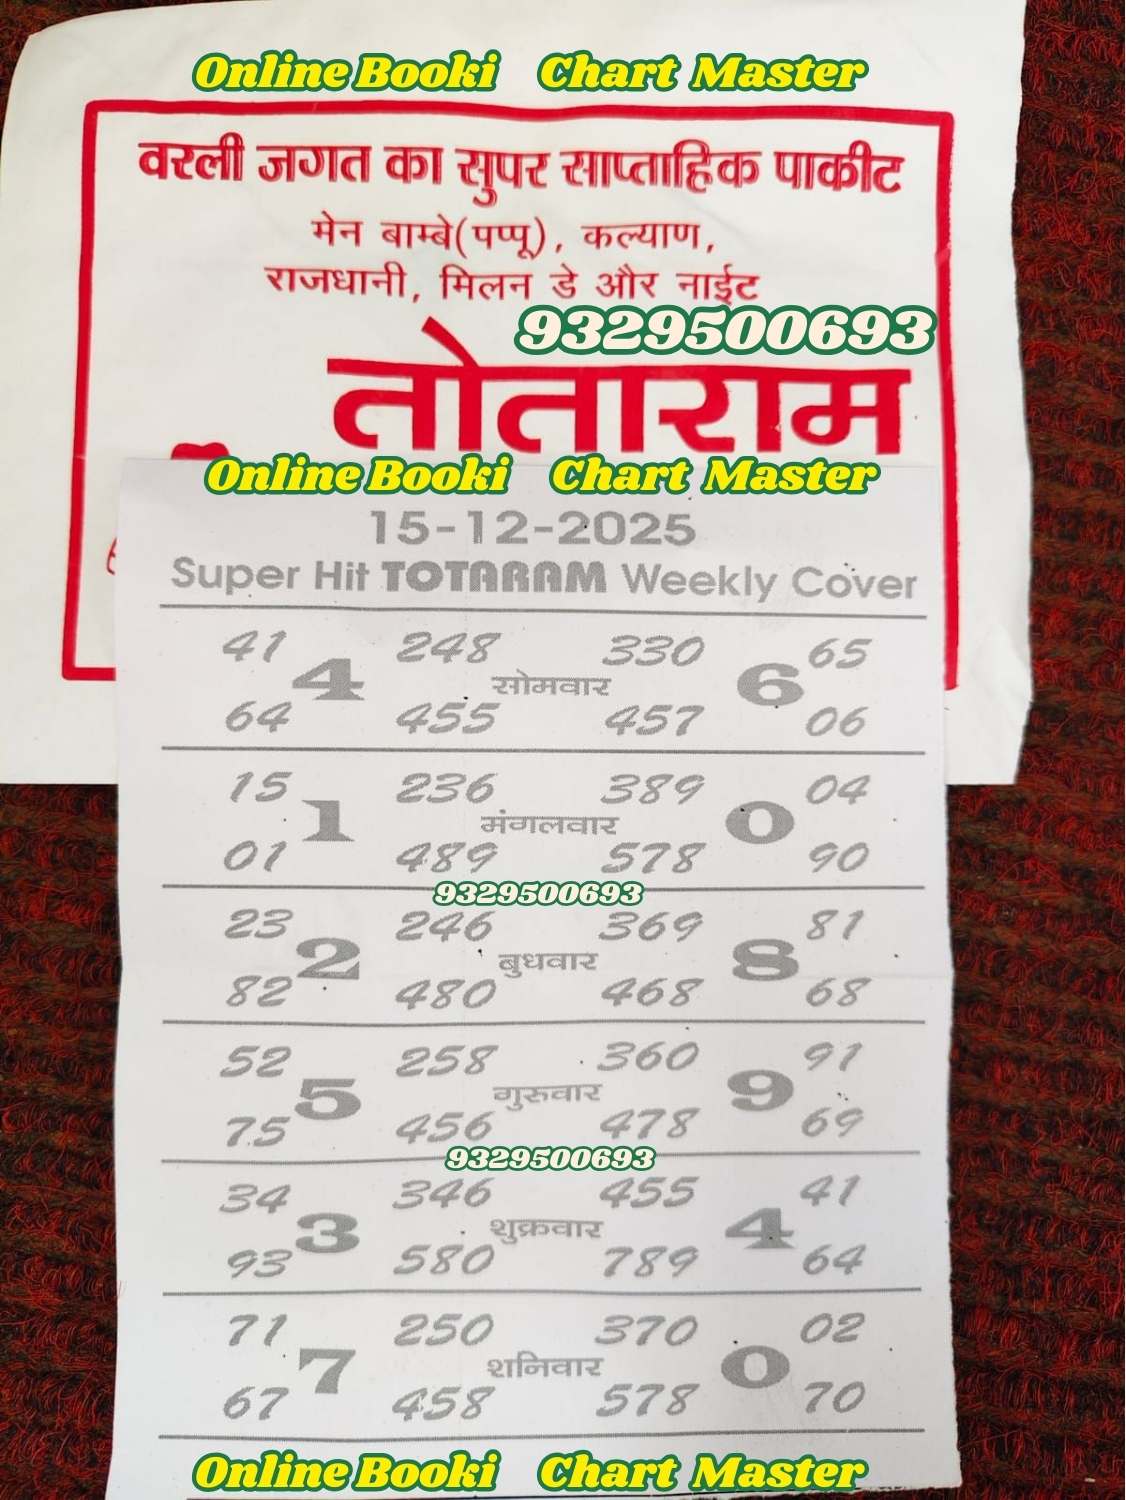 Online Booki Chart Master
वरली जगत का सुपर साप्ताहिक पाकीट
मेन बाम्बे(पप्पू), कल्याण,
राजधानी, मिलन डे और नाईट
9329500693
तोताराम
Online Booki Chart Master
15-12-2025
Super Hit TOTARAM Weekly Cover
41 248 330 65
4 सोमवार 6
64 455 457 06
15 236 389 04
1 मंगलवार 0
01 489 578 90
9329500693
23 246 369 81
2 बुधवार 8
82 480 468 68
52 258 360 91
5 गुरुवार 9
75 456 478 69
9329500693
34 346 455 41
3 शुक्रवार 4
93 580 789 64
71 250 370 02
7 शनिवार 0
67 458 578 70
Online Booki Chart Master